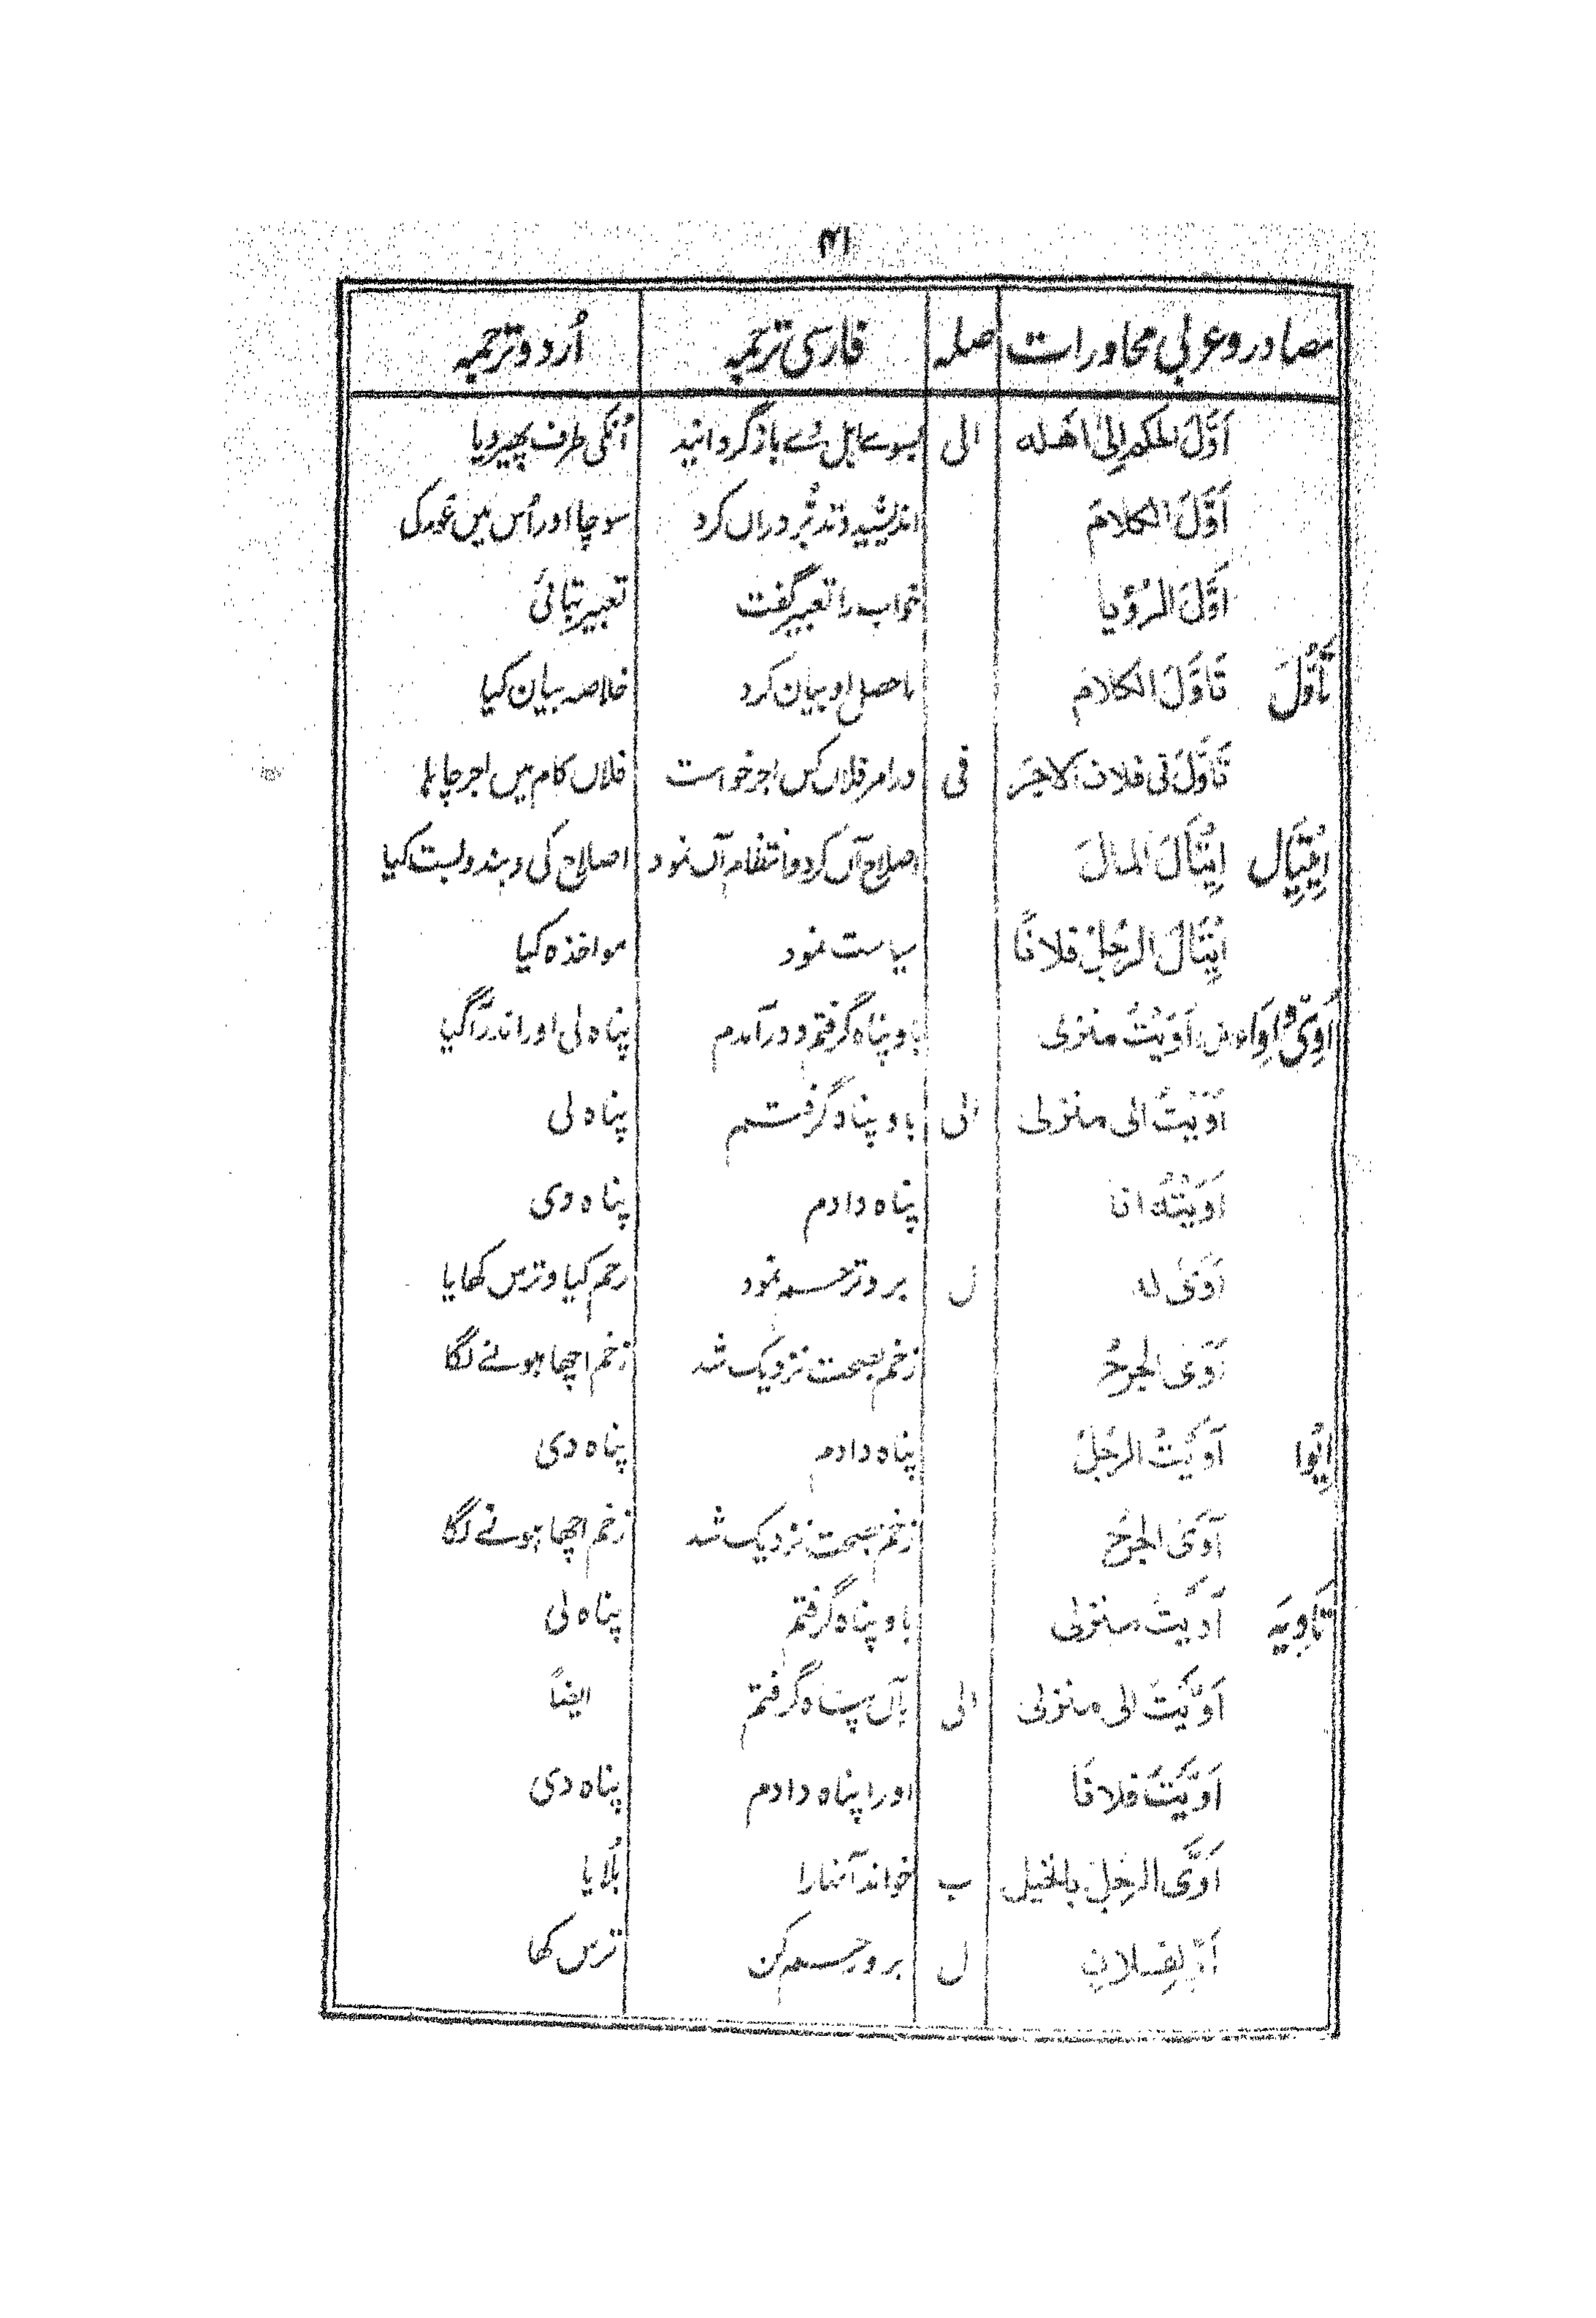 ۴۱
مصادر وعربی محاورات صلہ فارسی ترجمہ اُردو ترجمہ
اَوَّلَ الحکمَ اِلیٰ اَھلہ الی بسوے اہل وے بازگردانید اُنکی طرف پھیردیا
اَوَّلَ الکلامَ اندیشید وتدبُّر دراں کرد سوچا اور اُس میں غور کی
اَوَّلَ الرُؤیا خواب را تعبیر گفت تعبیر بتائی
تَأَوُّل تَاَوَّلَ الکلامَ ماحصل او بیان کرد خلاصہ بیان کیا
تَاَوَّلَ فی فلان الاجرَ فی درامر فلاں کس اجر خواست فلاں کام میں اجر چاہا
اِیْتِیَال اِیْتَالَ المالَ اصلاح آں کرد وانتظام آں نمود اصلاح کی وبندوبست کیا
اِیْتَالَ الرَجُلُ فلانًا سیاست نمود مواخذہ کیا
اُوِیّ واِوَاء ض اَوَیْتُ منزلی باو پناہ گرفتم ودرآمدم پناہ لی اور اندر آگیا
اَوَیْتُ الی منزلی الی باو پناہ گرفتم پناہ لی
اَوَیْتُہ انا پناہ دادم پناہ دی
اَوَیٰ لہ ل برو ترحم نمود رحم کیا وترس کھایا
اَوَی الجرحُ زخم بصحت نزدیک شد زخم اچھا ہونے لگا
اِیْوا آوَیْتُ الرجلَ پناہ دادم پناہ دی
آوَی الجرحُ زخم بصحت نزدیک شد زخم اچھا ہونے لگا
تَاوِیَہ اَوَّیتُ منزلی باو پناہ گرفتم پناہ لی
اَوَّیْتُ الی منزلی الی بآں پناہ گرفتم ایضاً
اَوَّیْتُ فلانًا اورا پناہ دادم پناہ دی
اَوَّی الرجلُ بالخیل ب خواند آنہارا بُلایا
لفلانٍ ل برو رحم کن ترس کھا